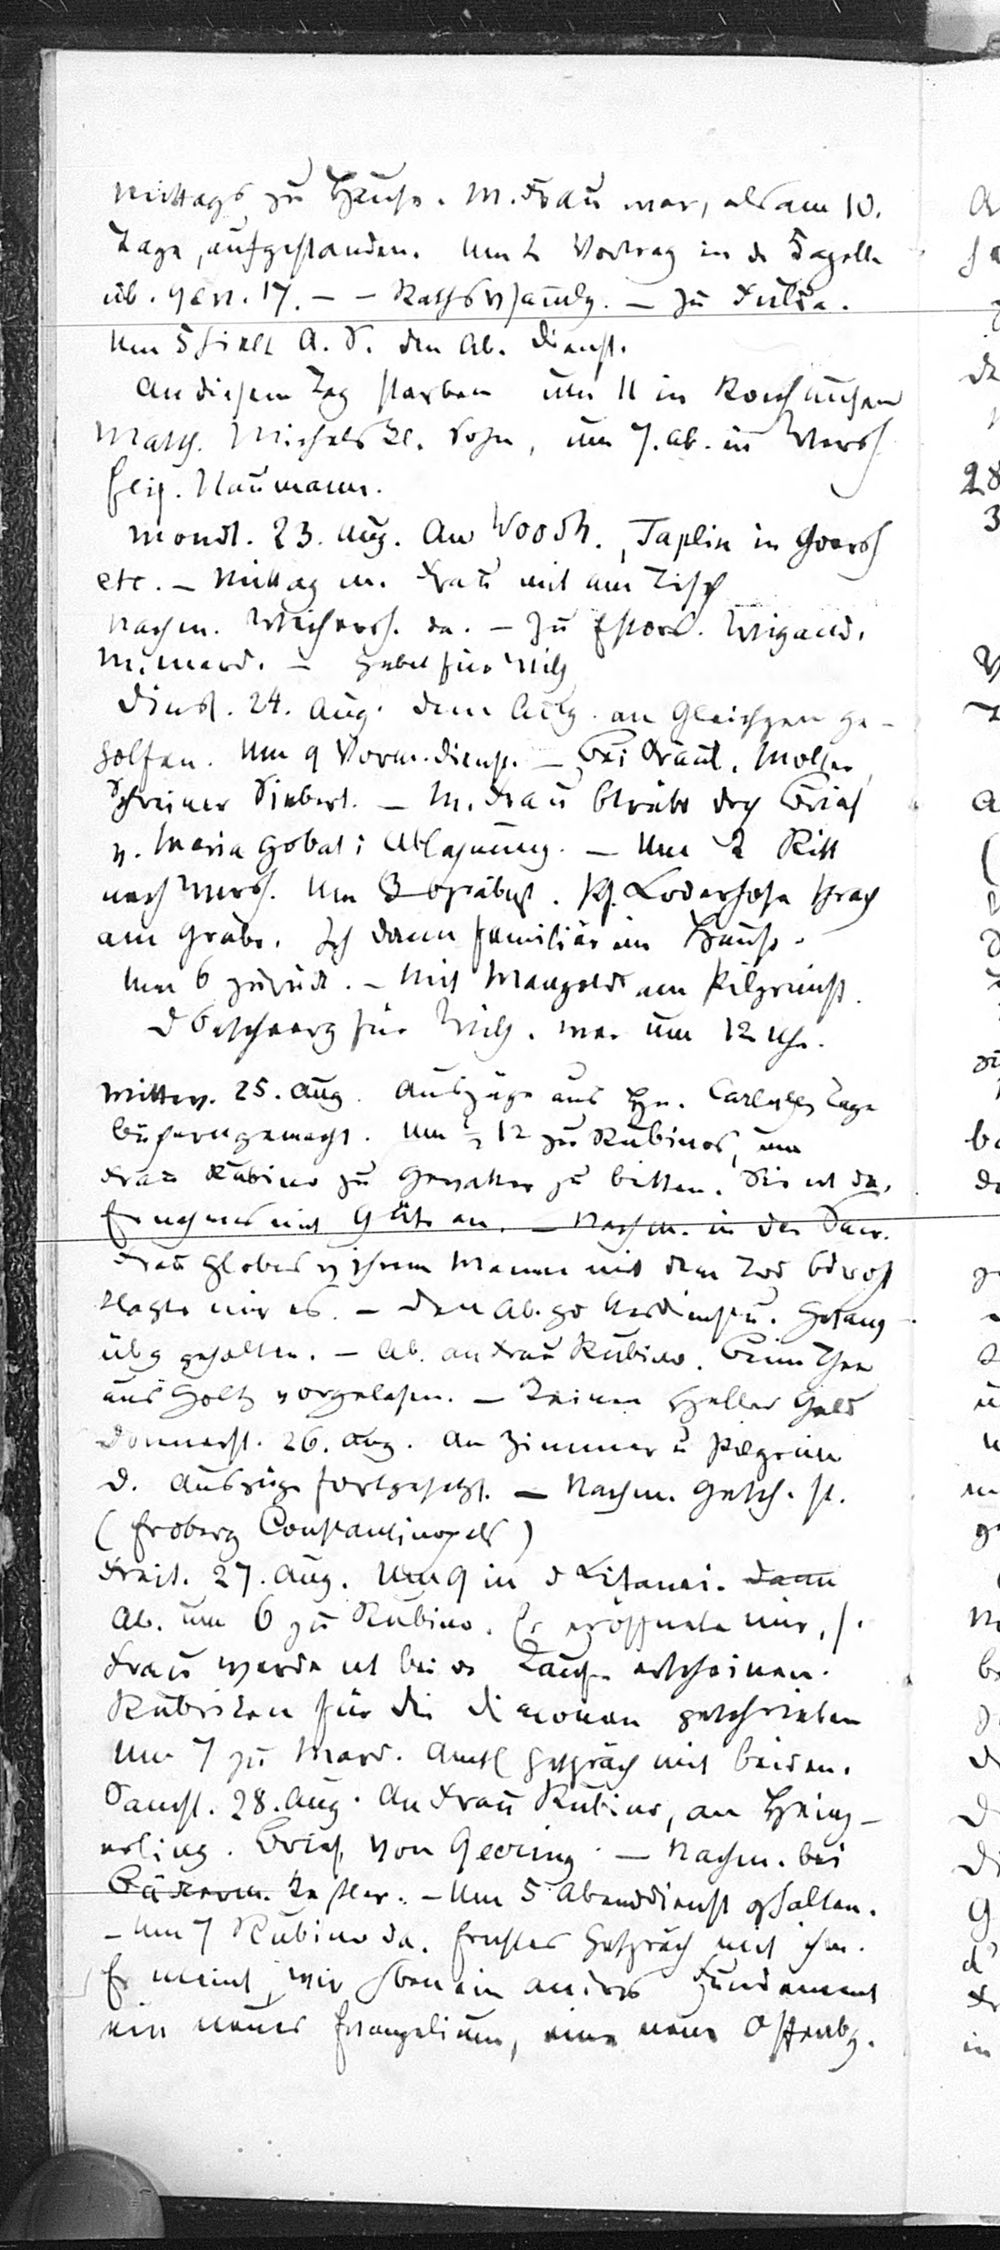 Mittags zu Hause. M. Frau war, als am 10.
Tage, aufgestanden. Um 2 Vortrag in d. Kapelle
üb. Gen. 17. – – Rathsvsamlg. – Zu Julia.
Um 5 hielt A. S. den Ab. dienst.
An diesem Tag starben um 11 in
Michels kl. Sohn, um 7. ab. in
Naumann.
Mondt. 23. Aug. An Woodh., Taplin in
etc. – Mittag m. Frau mit am Tisch
Nachm. da. – Zu Wigand.
gebet für
Dinst. 24. Aug. dem an Gleichgen ge-
holfen. Um 9 Vorm. dienst. – Bei
Schreiner Siebert. – M. Frau btrübt dch Brief
v. Maria Gobat: Ablehnung. – Um 2 Ritt
nach Um 3 Pf. Loderhose sprach
am Grabe. Ich dann familiär im Hause.
Um 6 zurück. – Mit Mangold am Pilgrimst.
für war um 12 Uhr.
Mittw. 25. Aug. Auszüge aus Hn. Carlyles Tage
büchern gemacht. Um ½ 12 zu Rubinos, um
Frau Rubino zu Gevatter zu bitten. Sie ist da.
Er nahm es mit Güte an. – Nachm. in der Sacr.
Frau v ihrem Manne mit dem Tod bdroht
klagte mir es. – Den Ab. go u. Gesang
übg gehalten. – Ab. an Frau Rubino. Beim Thee
aus Holtz vorgelesen. – Keinen Heller Geld
Donnerst. 26. Aug. An Zimmer u Pilgrim
D. Auszüge fortgesetzt. – Nachm. Gesch. st.
(Erobrg Constantinopels)
Freit. 27. Aug. Um 9 in d Litanei. dann
Ab. um 6 zu Rubino. Er eröffnete mir, s.
Frau werde nt bei dr Taufe erscheinen.
Rubriken für die Diaconen geschrieben
Um 7 zu Mard. Amtl Gespräch mit beiden.
Samst. 28. Aug. An Frau Rubino, an Heinz-
erling. Brief von Geering. – Nachm. bei
Kessler. – Um 5 Abenddienst ghalten.
– Um 7 Rubino da. Ernstes Gespräch mit ihm.
Er meint, wir hben ein andres Fundament
ein neues Evangelium, eine neue Offenbg.